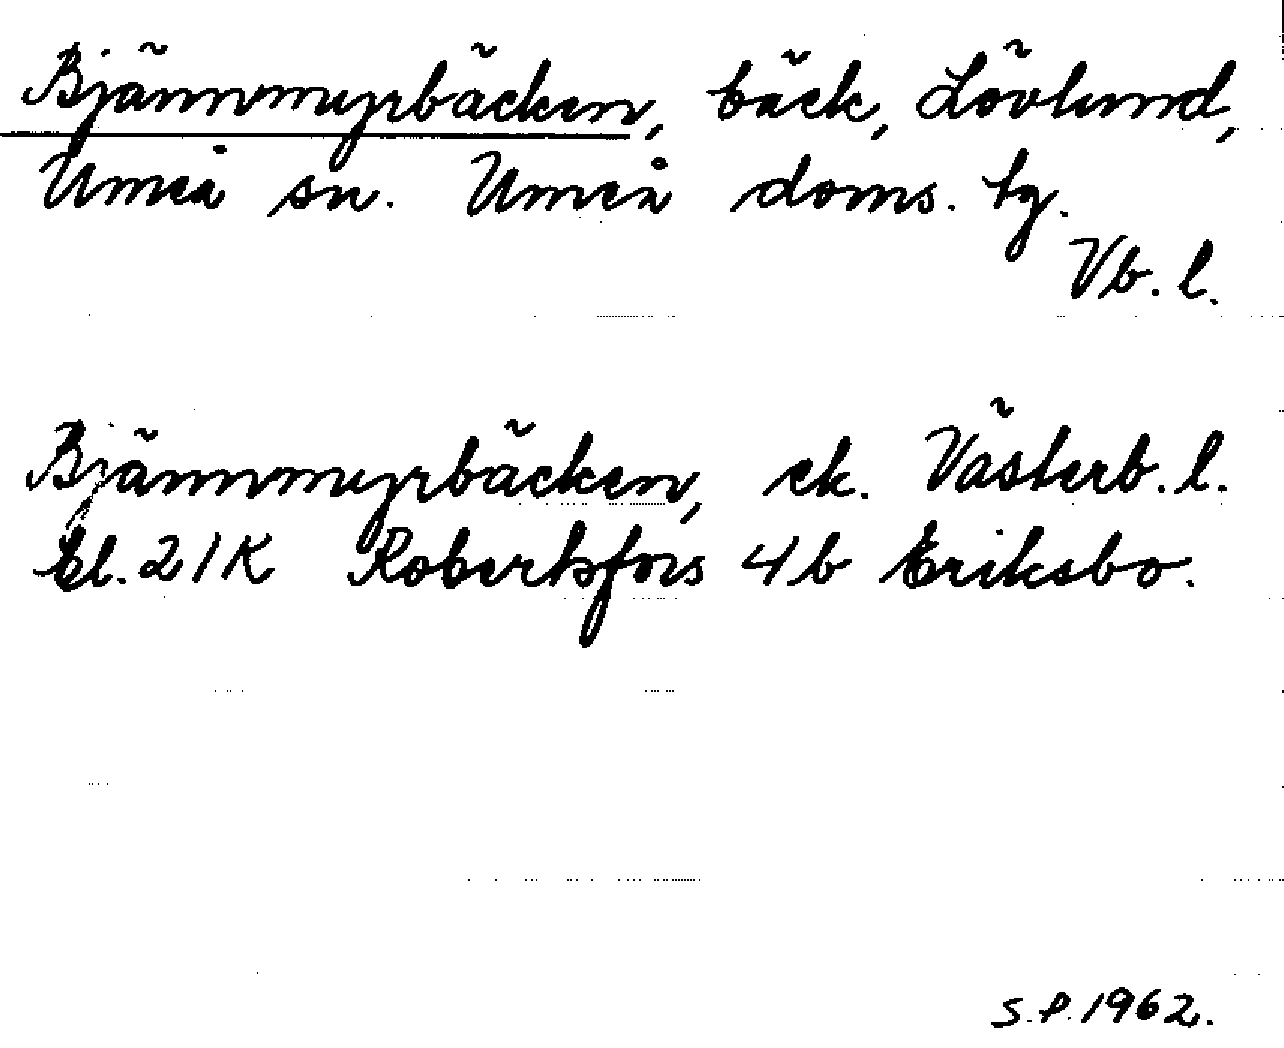 Bjännmyrbäcken, bäck, Lövlund,
Umeå sn. Umeå doms. tg.
Vb. l.
Bjännmyrbäcken, ek. Västerb. l.
bl. 21K Robertsfors 4b Eriksbo.
S.P. 1962.